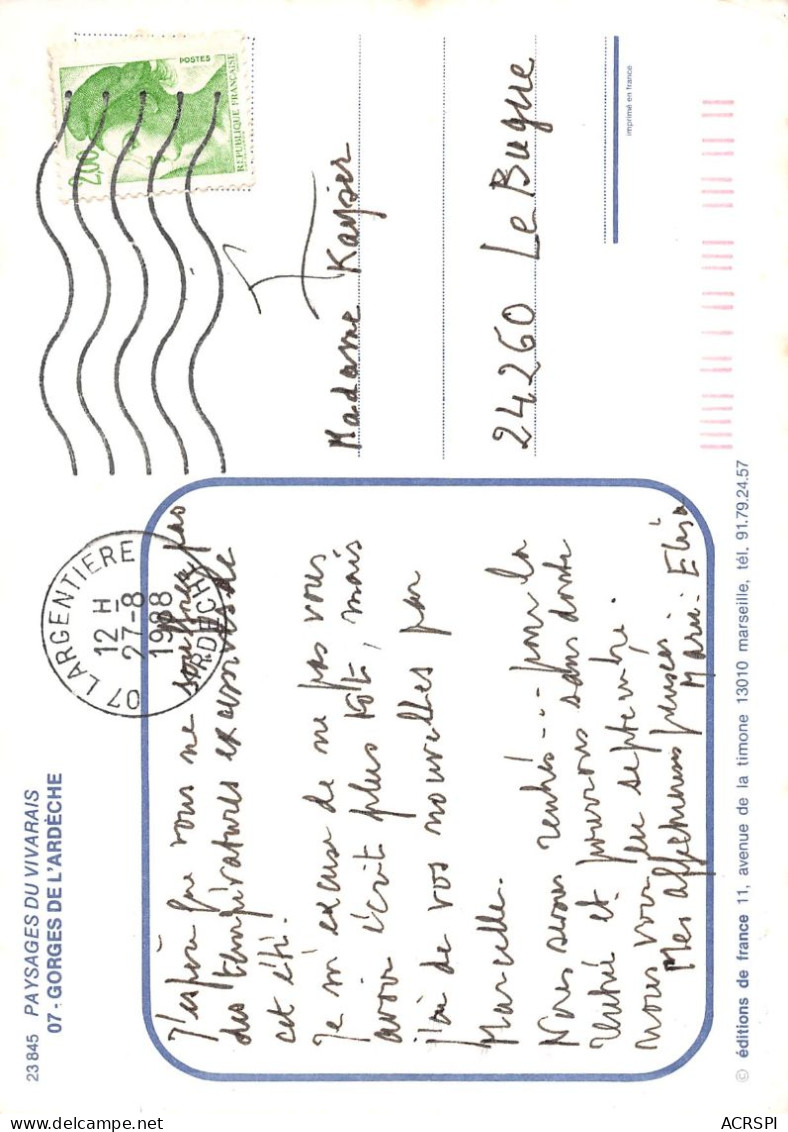 23845 PAYSAGES DU VIVARAIS
07 - GORGES DE L'ARDÈCHE
07 LARGENTIERE
12 H
27-8
1988
ARDECHE
POSTES
2,00
REPUBLIQUE FRANÇAISE
J'espère que vous ne souffrez pas
des températures excessives de
cet été.
Je m'excuse de ne pas vous
avoir écrit plus tôt, mais
j'ai de vos nouvelles par
Marcelle.
Nous serons rentrés... pour la
rentrée et pourrons sans doute
nous voir en septembre.
Mes affectueuses pensées.
Marie-Elisa
Madame Kayser
24260 Le Bugue
imprimé en france
© éditions de france 11, avenue de la timone 13010 marseille, tél. 91.79.24.57
ACRSPI